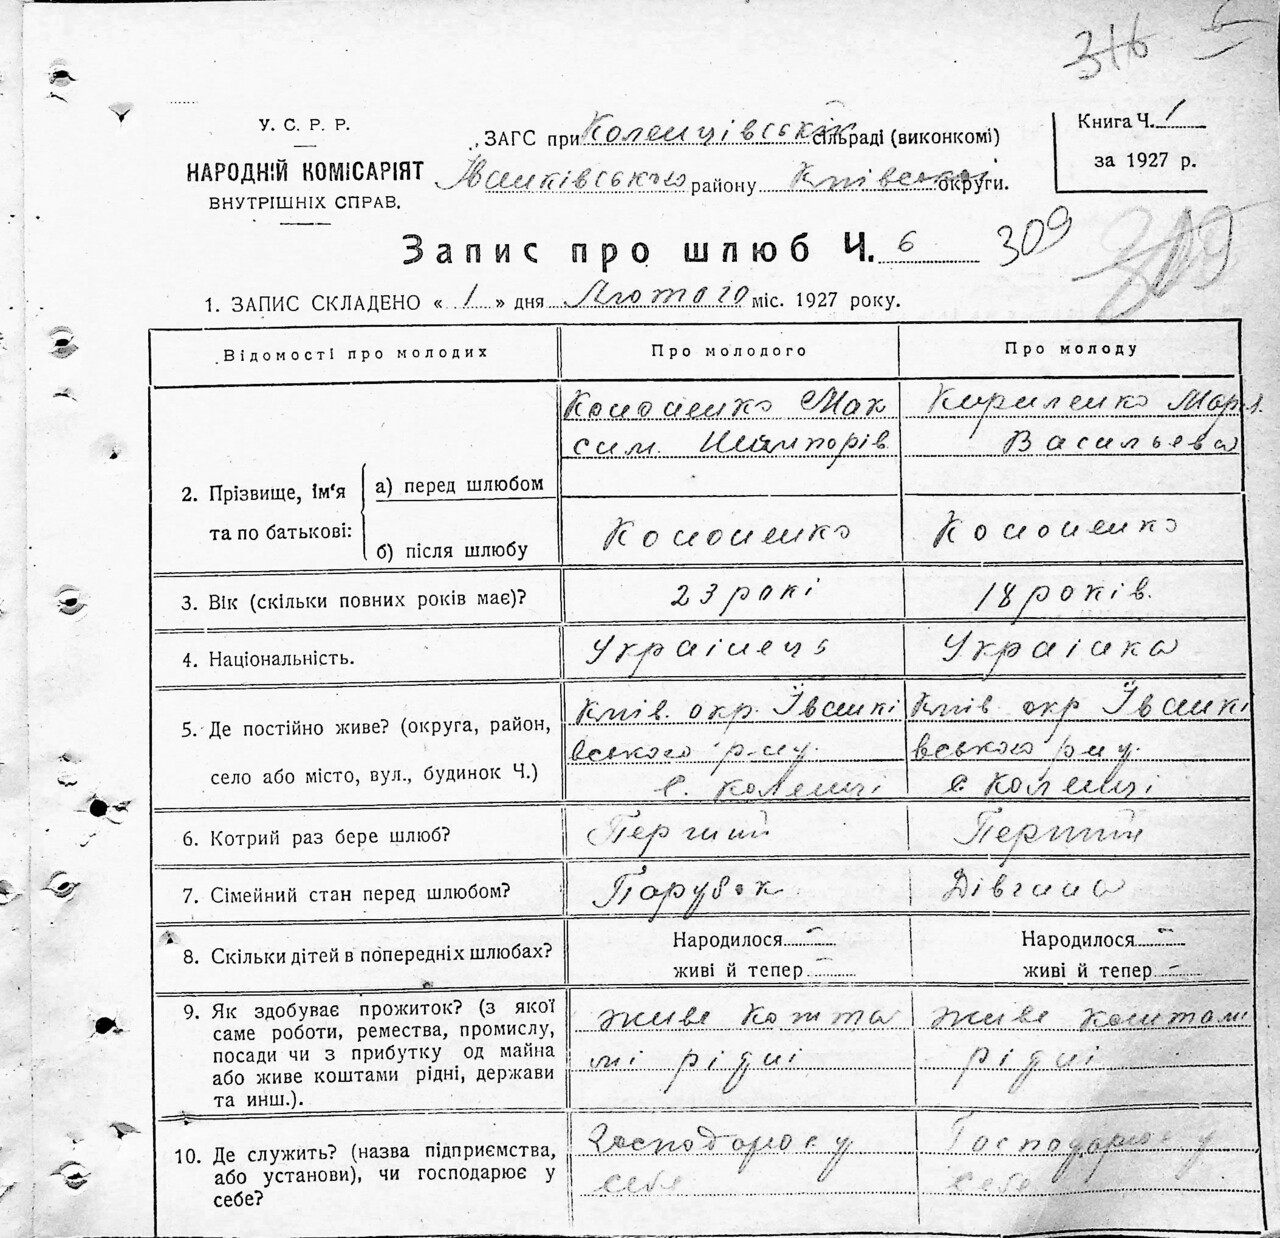 316 6
У. С. Р. Р.
НАРОДНІЙ КОМІСАРІЯТ
ВНУТРІШНІХ СПРАВ.
ЗАГС при Коленцівській сільраді (виконкомі)
Іванківського району Київської округи.
Книга Ч. 1
за 1927 р.
Запис про шлюб Ч. 6 309 309
1. ЗАПИС СКЛАДЕНО « 1 » дня Лютого міс. 1927 року.
Відомості про молодих Про молодого Про молоду
2. Прізвище, ім'я та по батькові:
а) перед шлюбом
Кононенко Мак
сим.
Кириленко Мар.
Васильева
б) після шлюбу Кононенко Кононенко
3. Вік (скільки повних років має)? 23 рокі 18 років.
4. Національність. Украінець Украінка
5. Де постійно живе? (округа, район,
село або місто, вул., будинок Ч.)
Київ. окр. Іванкі
вського р-ну.
с. Коленці
Київ окр Іванкі
вського рну.
с. Коленці
6. Котрий раз бере шлюб? Перший Перший
7. Сімейний стан перед шлюбом? Парубок Дівчина
8. Скільки дітей в попередніх шлюбах? Народилося - Народилося -
живі й тепер - живі й тепер -
9. Як здобуває прожиток? (з якої
саме роботи, ремества, промислу,
посади чи з прибутку од майна
або живе коштами рідні, держави
та инш.).
живе кошта
мі рідні
живе коштамі
рідні
10. Де служить? (назва підприємства,
або установи), чи господарює у
себе?
Господорює у
себе
Господорює у
себе